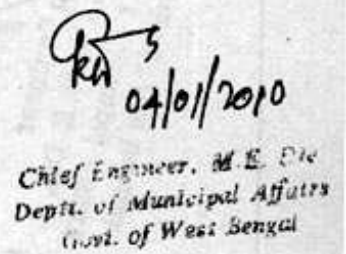 04/01/2010
Chief Engineer, M. E. Dte
Deptt. of Municipal Affairs
Govt. of West Bengal